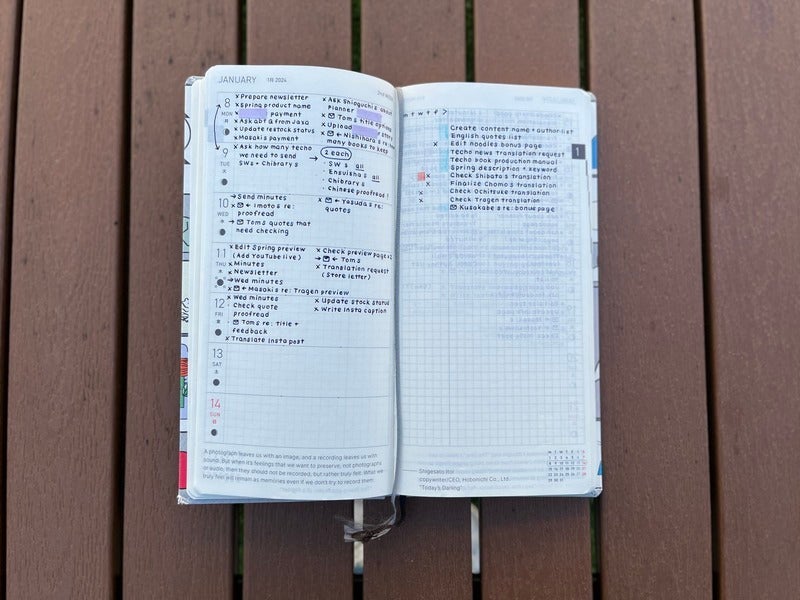 JANUARY 1月 2024
8
MON
x Prepare newsletter
x Spring product name
payment
x Ask abt a from Jaxa
x Update restock status
x Masakis payment
x Ask Shioguchis about
planner
x Tom's title options
x Upload
x ← Nishihara's re: how
many books to keep
9
TUE
x Ask how many techo
we need to send
SWs + Chibrarys
→ 2 each
· SWs all
· Ensuishas all
· Chibrarys
· Chinese proofread!
10
WED
→ Send minutes
x ← Imotos re:
proofread
→ Toms quotes that
need checking
x ← Yasudas re:
quotes
11
THU
x Edit Spring preview
(Add YouTube live)
x Minutes
x Newsletter
→ Wed minutes
x ← Masakis re: Tragen preview
x Check preview page x2
→ ← Toms
x Translation request
(Store letter)
12
FRI
x Wed minutes
· Check quote
proofread
· Toms re: title +
feedback
x Translate Insta post
x Update stock status
x Write Insta caption
13
SAT
14
SUN
A photograph leaves us with an image, and a recording leaves us with
sound. But when it's feelings that we want to preserve, not photographs
or audio, then they should not be recorded, but rather truly felt. What we
truly feel will remain as memories even if we don't try to record them.
m t w t f >
Create content name + author list
English quotes list
x Edit noodles bonus page
Techo news translation request
Techo book production manual
Spring description + keyword
x Check Shibata's translation
x Finalize Chomo's translation
x Check Ochitsuke translation
x Check Tragen translation
Kusakabe's re: bonus page
1
Shigesato Itoi
copywriter/CEO, Hobonichi Co., Ltd.
"Today's Darling"
M T W T F S S
1 2 3 4 5 6 7
8 9 10 11 12 13 14
15 16 17 18 19 20 21
22 23 24 25 26 27 28
29 30 31